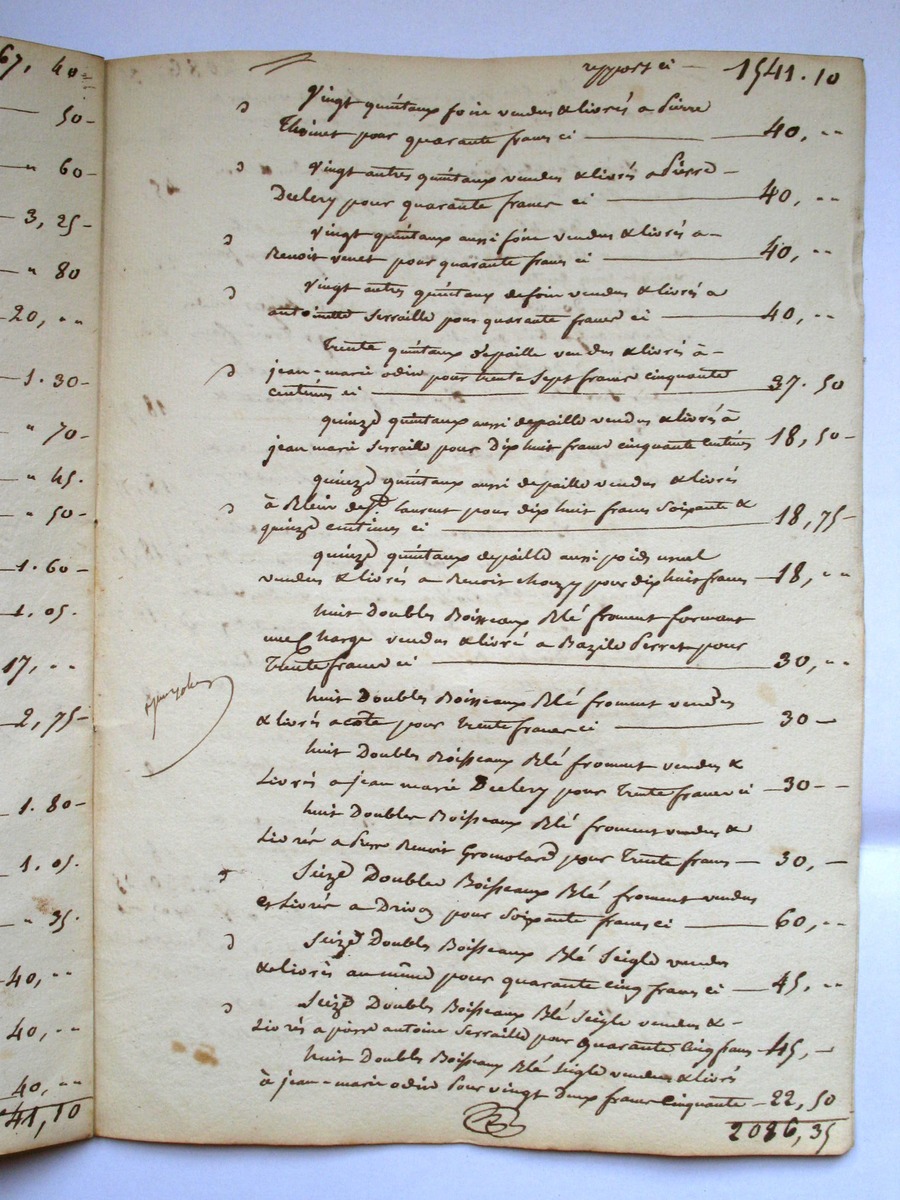 67, 40
50-
" 60-
3, 25-
" 80
20, "
1. 30-
" 70-
" 45.
" 50-
1. 60-
1. 05.
17, "
2, 75-
1. 80-
1. 05.
" 35
40, "
40, "
40, "
41, 10
report ci — 1541. 10
Vingt quintaux foin vendus & livrés a Pierre
Thoinet pour quarante francs ci — 40, "
Vingt autres quintaux vendus & livrés a Pierre —
Duclery pour quarante francs ci — 40, "
Vingt quintaux aussi foin vendus & livrés a —
Benoit venet pour quarante francs ci — 40, "
Vingt autres quintaux de foin vendus & livrés a
antoinette Serraille pour quarante francs ci — 40, "
Trente quintaux depaille vendus & livrés à —
jean-marie odin pour trente Sept francs cinquante
centimes ci — 37. 50
quinze quintaux aussi depaille vendus & livrés à
jean marie Serraille pour Dix huit francs cinquante centimes 18, 50-
quinze quintaux aussi depaille vendus & livrés
à laurent pour dix huit francs Soixante &
quinze centimes ci — 18, 75-
quinze quintaux depaille aussi poids usuel
vendus & livrés a Benoit Chouzy pour dix huit francs — 18, "
huit Doubles Boisseaux Blé froment formant
une Charge vendus & livré a Bazile Perret pour
Trente francs ci — 30, "
huit Doubles Boisseaux Blé froment vendus
& livrés a cote pour Trente francs ci — 30 —
huit Doubles Boisseaux Blé froment vendus &
Livrés a jean marie Duclery pour Trente francs ci — 30 —
huit Doubles Boisseaux Blé froment vendus &
Livrés a Benoit Gromolard pour Trente francs — 30, —
Seize Doubles Boisseaux Blé froment vendus
et Livrés a Drivon pour Soixante francs ci — 60, "
Seize Doubles Boisseaux Blé Seigle vendus
& livrés au même pour quarante cinq francs ci — 45, "
Seize Doubles Boisseaux Blé Seigle vendus & —
Livrés a pierre antoine Serraille pour quarante Cinq francs — 45, —
huit Doubles Boisseaux Blé seigle vendus & livrés
à jean-marie odin Pour vingt Deux francs Cinquante — 22, 50
2086, 35